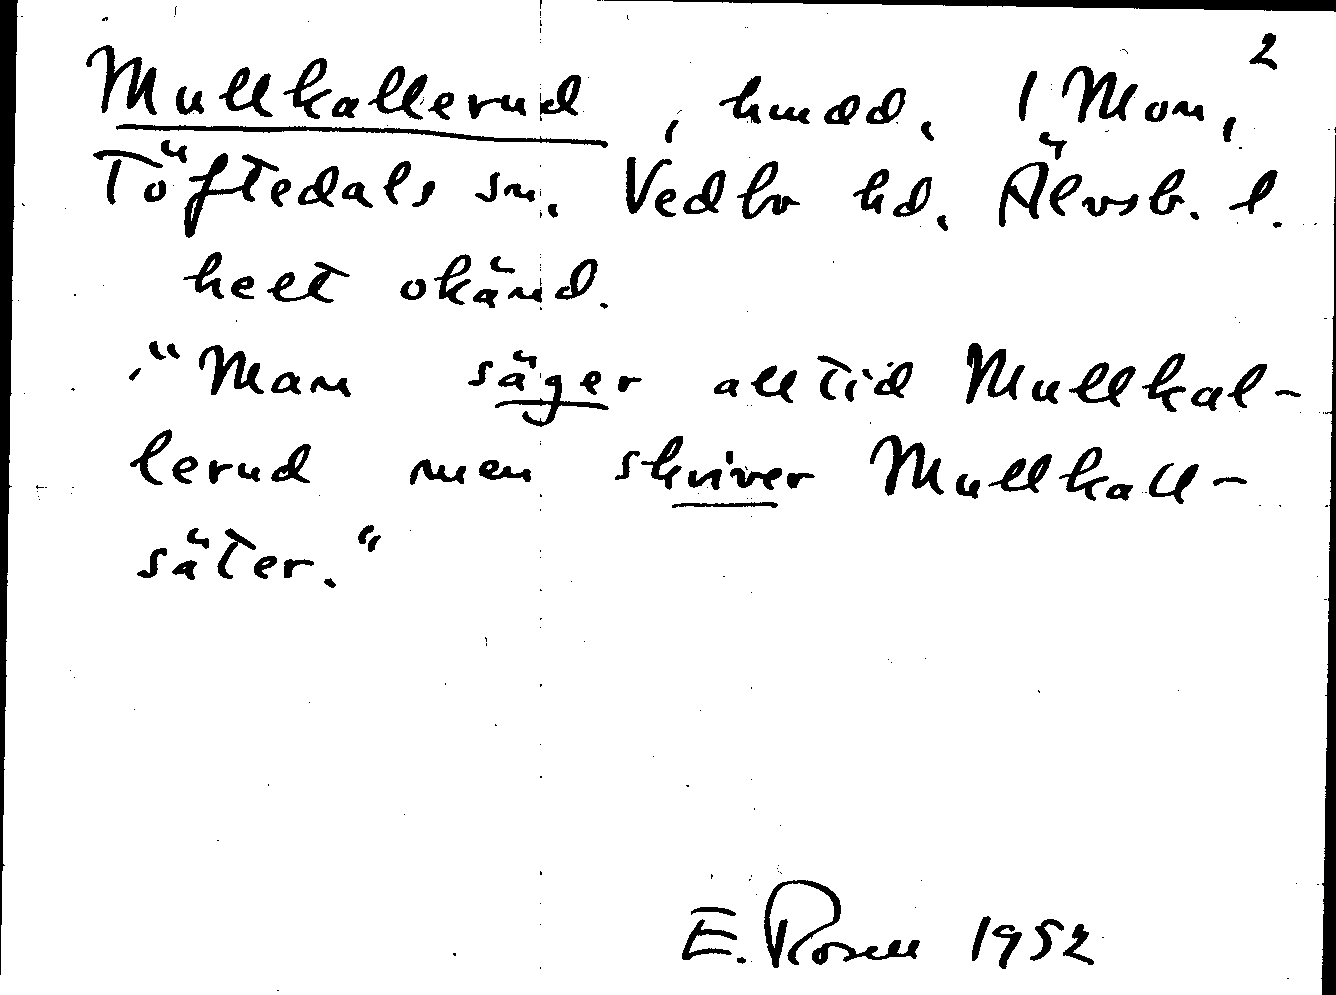 2
Mullkallerud, hmdd. 1 Mon,
Töftedals sn. Vedbo hd. Älvsb. l.
helt okänd.
"Man säger alltid Mullkal-
lerud men skriver Mullkall-
säter."
E. Rosell 1952